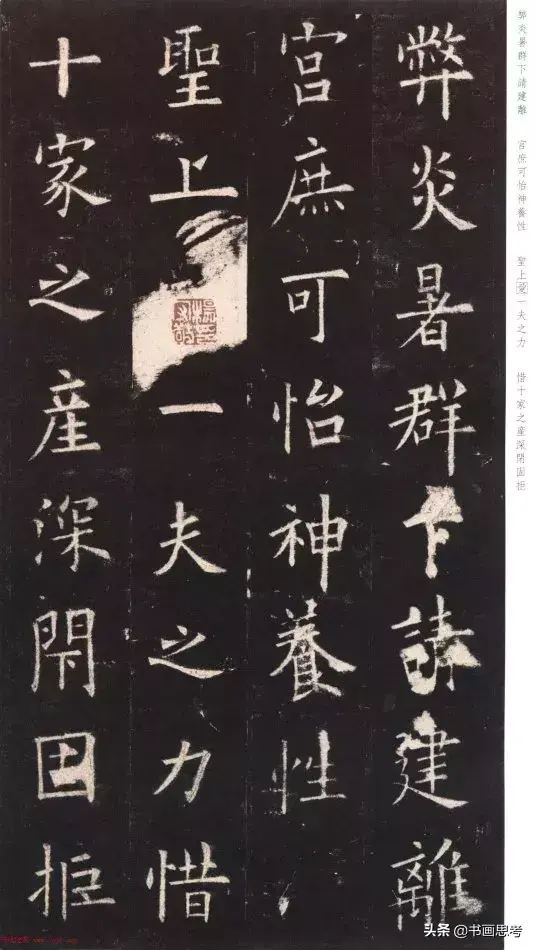 弊炎暑群下請建離
宮庶可怡神養性
聖上一夫之力惜
十家之産深閇固拒
弊炎暑群下請建離 宮庶可怡神養性 聖上愛一夫之力 惜十家之産深閇固拒
头条 @书画思考